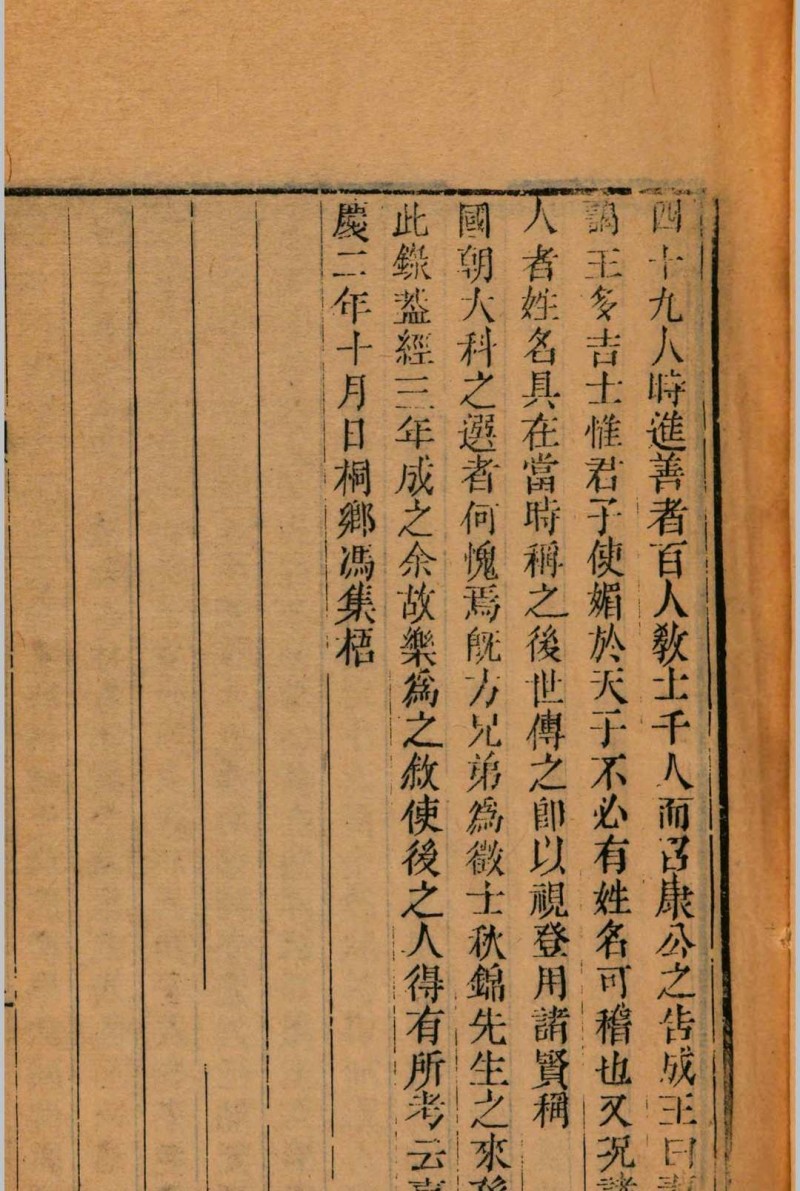 四十九人時進善者百人敎士千人而召康公之告成王曰
謁王多吉士惟君子使媚於天子不必有姓名可稽也又況諸
人者姓名具在當時稱之後世傳之卽以視登用諸賢稱
國朝大科之選者何愧焉旣方兄弟爲徵士秋錦先生之來孫
此錄蓋經三年成之余故樂爲之敘使後之人得有所考云
慶二年十月日桐鄉馮集梧